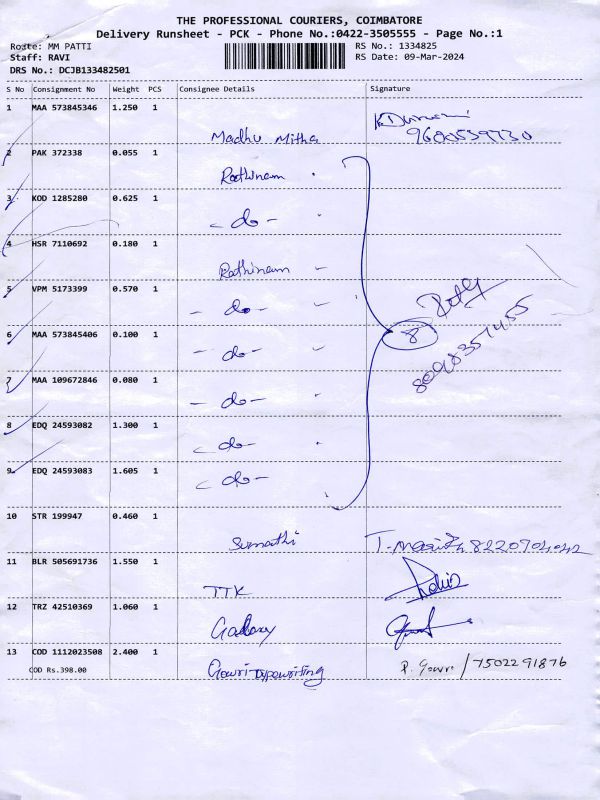 THE PROFESSIONAL COURIERS, COIMBATORE
Delivery Runsheet - PCK - Phone No.:0422-3505555 - Page No.:1
Route: MM PATTI
RS No.: 1334825
Staff: RAVI
RS Date: 09-Mar-2024
DRS No.: DCJB133482501
S No Consignment No Weight PCS Consignee Details Signature
1 MAA 573845346 1.250 1
Madhu Mitha 9600539730
2 PAK 372338 0.055 1
Rathinam
3 KOD 1285280 0.625 1
- do -
4 HSR 7110692 0.180 1
Rathinam
5 VPM 5173399 0.570 1
- do -
6 MAA 573845406 0.100 1
8
- do -
7 MAA 109672846 0.080 1
- do -
8 EDQ 24593082 1.300 1
- do -
9 EDQ 24593083 1.605 1
- do -
10 STR 199947 0.460 1
Sumathi
11 BLR 505691736 1.550 1
TTK
12 TRZ 42510369 1.060 1
Galaxy
13 COD 1112023508 2.400 1
COD Rs.398.00
Gowri Typewriting P. Gowri / 7502291876